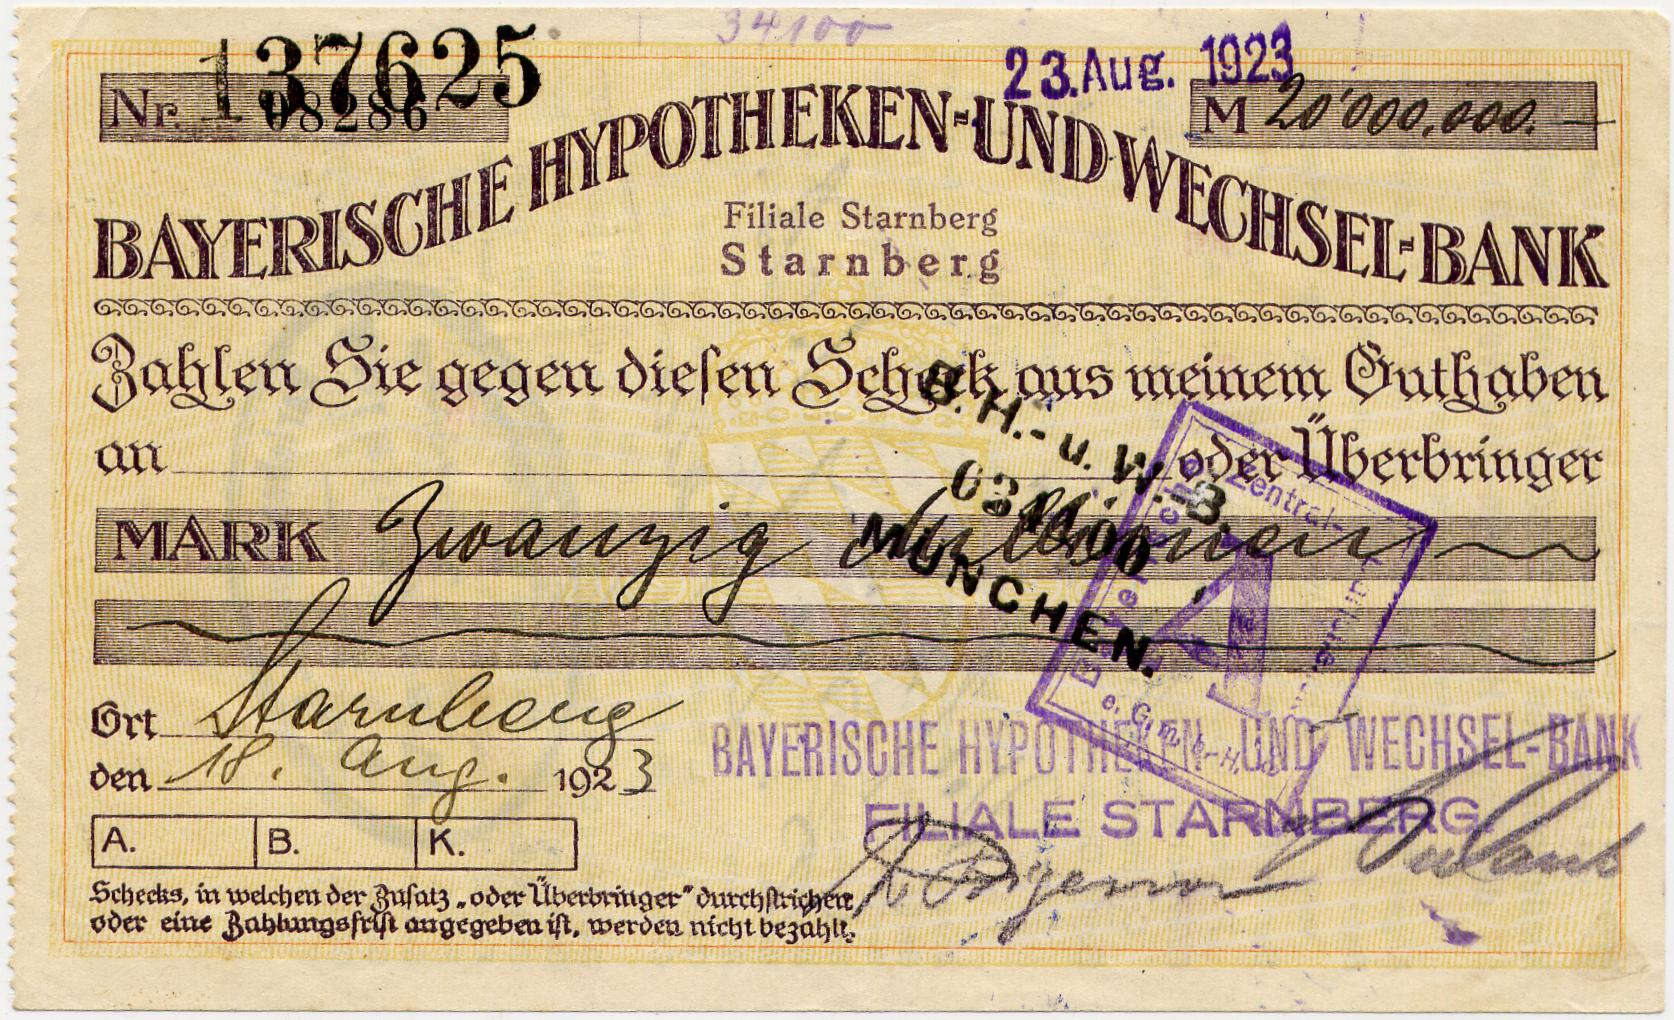 34100
137625
23. Aug. 1923
Nr. 1 08286
M 20'000.000.—
BAYERISCHE HYPOTHEKEN-UND WECHSEL-BANK
Filiale Starnberg
Starnberg
Zahlen Sie gegen diesen Scheck aus meinem Guthaben
an oder Überbringer
B. H.- u. W. B.
MÜNCHEN.
Zentral-
MARK Zwanzig Millionen
Ort Starnberg
den 18. Aug. 1923
BAYERISCHE HYPOTHEKEN- UND WECHSEL-BANK
FILIALE STARNBERG.
e. G. m. b. H.
A. B. K.
Schecks, in welchen der Zusatz „oder Überbringer" durchstrichen
oder eine Zahlungsfrist angegeben ist, werden nicht bezahlt.